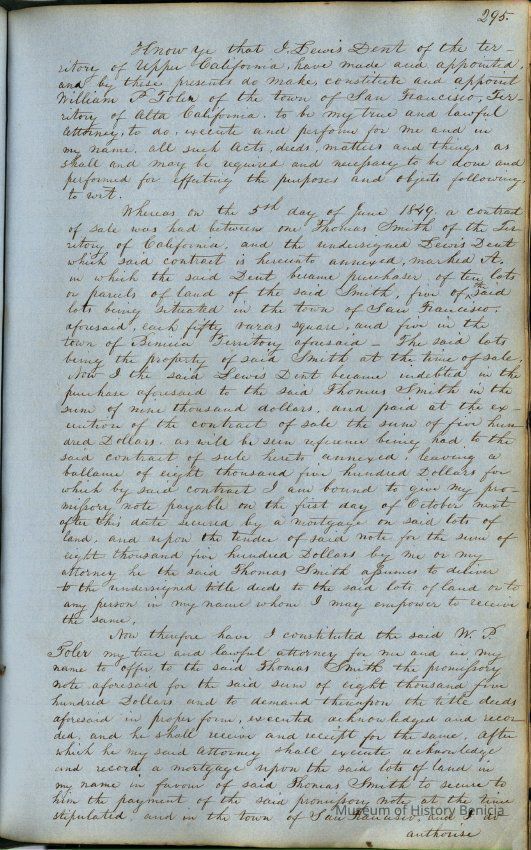 295.
Know ye that I, Lewis Dent of the ter-
ritory of Upper California, have made and appointed,
and by these presents do make, constitute and appoint
William P Toler of the town of San Francisco, Ter-
ritory of Alta California, to be my true and lawful
Attorney, to do, execute and perform for me and in
my name, all such acts, deeds, matters and things as
shall and may be required and necessary to be done and
performed for effecting the purposes and objects following
to wit.
Whereas on the 5th day of June 1849, a contract
of sale was had between one Thomas Smith of the Ter-
ritory of California, and the undersigned Lewis Dent
which said contract is hereunto annexed, marked A,
in which the said Dent became purchaser of ten lots
or parcels of land of the said Smith, five of the said
lots being situated in the town of San Francisco
aforesaid, each fifty varas square, and five in the
town of Benicia Territory aforesaid - The said lots
being the property of said Smith at the time of sale
Now I the said Lewis Dent became indebted in the
purchase aforesaid to the said Thomas Smith in the
sum of nine thousand dollars, and paid at the ex-
ecution of the contract of sale the sum of five hun-
dred Dollars. as will be seen reference being had to the
said contract of sale hereto annexed. leaving a
ballance of eight thousand five hundred Dollars for
which by said contract I am bound to give my pro-
missory note payable on the first day of October next
after this date secured by a mortgage on said lots of
land, and upon the tender of said note for the sum of
eight thousand five hundred Dollars by me or my
attorney he the said Thomas Smith assumes to deliver
to the undersigned title deeds to the said lots of land or to
any person in my name whom I may empower to receive
the same.
Now therefore have I constituted the said W. P.
Toler my true and lawful attorney for me and in my
name to offer to the said Thomas Smith the promissory
note aforesaid for the said sum of eight thousand five
hundred Dollars and to demand thereupon the title deeds
aforesaid in proper form, executed acknowledged and recor-
ded, and he shall receive and receipt for the same, After
which he my said Attorney shall execute acknowledge
and record a mortgage upon the said lots of land in
my name in favour of said Thomas Smith to secure to
him the payment of the said promissory note at the time
stipulated and in the town of San Francisco, and I do
authorise
Museum of History Benicia